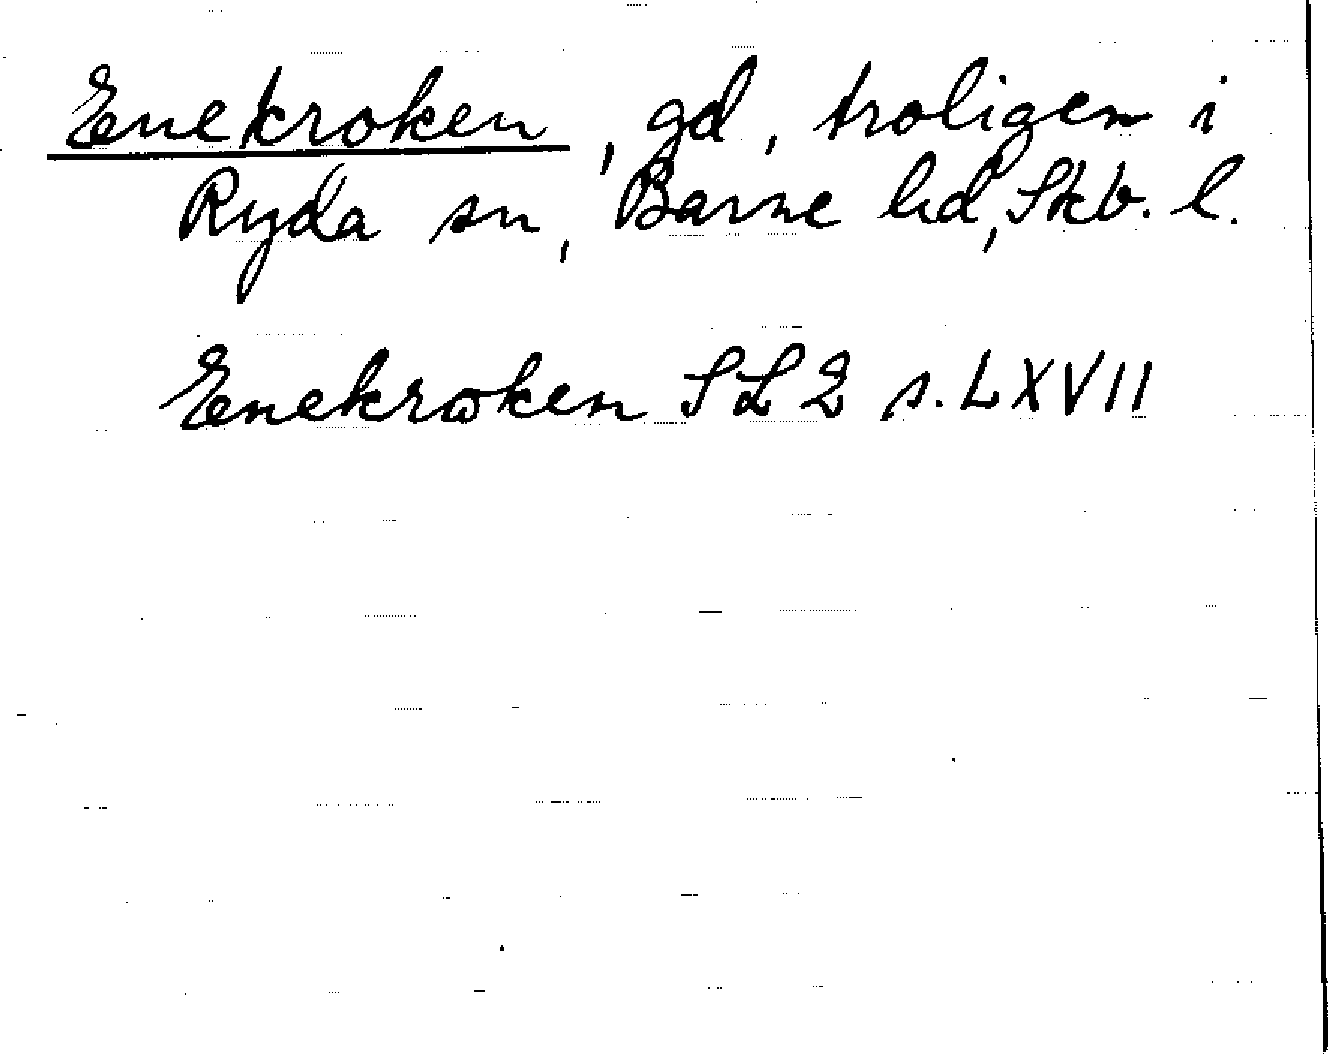 Enekroken, gd, troligen i
Ryda sn, Barne hd, Skb. l.
Enekroken SL 2 s. LXVII